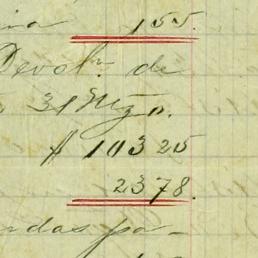 ia 155.
Devoln. de
31 Mzo.
$ 103 25
2378.
das pa-